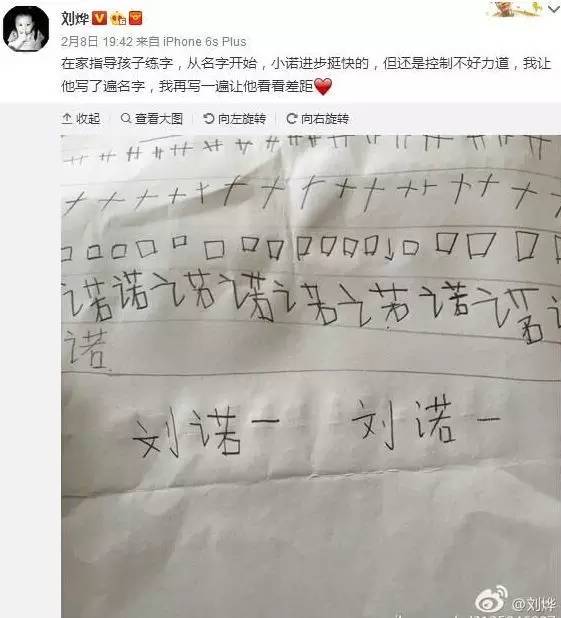 刘烨
2月8日 19:42 来自 iPhone 6s Plus
在家指导孩子练字，从名字开始，小诺进步挺快的，但还是控制不好力道，我让
他写了遍名字，我再写一遍让他看看差距
收起 查看大图 向左旋转 向右旋转
诺诺诺诺诺诺诺诺
诺
刘诺一 刘诺一
@刘烨